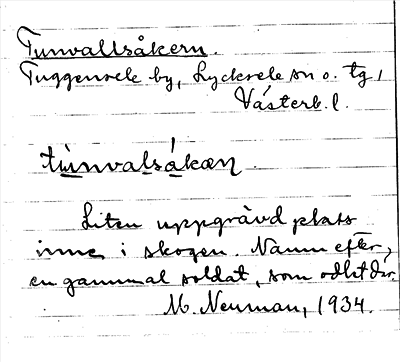 Tunvallsåkern.
Tuggensele by, Lycksele sn o. tg,
Västerb. l.
tùnvalsákæn.
Liten uppgrävd plats
inne i skogen. Namn efter
en gammal soldat, som odlat där.
M. Neuman, 1934.